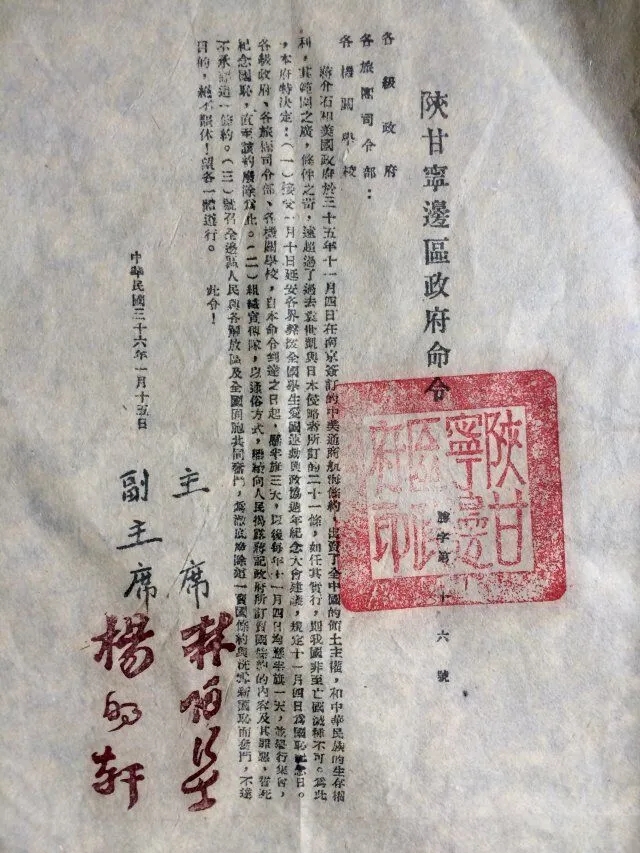 陝甘寧邊區政府命令
陝甘
寧邊
區政
府印
勝字第十六號
各級政府
各旅團司令部：
各機關學校
蔣介石和美國政府於三十五年十一月四日在南京簽訂的中美通商航海條約，出賣了全中國的領土主權，和中華民族的生存權
利，其範圍之廣，條件之苛，遠超過了過去袁世凱與日本侵略者所訂的二十一條，如任其實行，則我國非至亡國滅種不可。爲此
，本府特決定：（一）接受一月十日延安各界聲援全國學生愛國運動與政協週年紀念大會建議，規定十一月四日爲國恥紀念日。
各級政府、各旅團司令部、各機關學校，自本命令到達之日起，懸半旗三天，以後每年十一月四日均懸半旗一天，並舉行集會，
紀念國恥，直至該約廢除爲止。（二）組織宣傳隊，以通俗方式，向人民揭露蔣記政府所訂賣國條約的內容及其罪惡，誓死
不承認這一條約。（三）號召全邊區人民與各解放區及全國同胞共同奮鬥，爲徹底廢除這一賣國條約與洗雪新國恥而奮鬥，不達
目的，絕不罷休！望各一體遵行。
此令！
主席 林伯渠
副主席 楊明軒
中華民國三十六年一月十五日